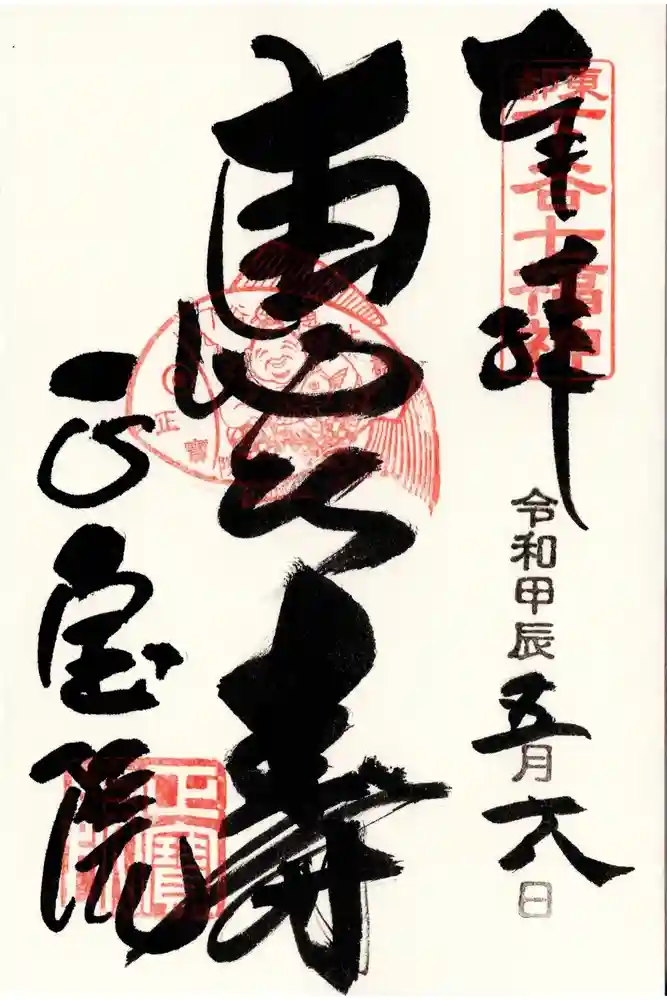 奉拝
東都下谷七福神
令和甲辰五月六日
恵比寿
正寶院
正宝院
正寶